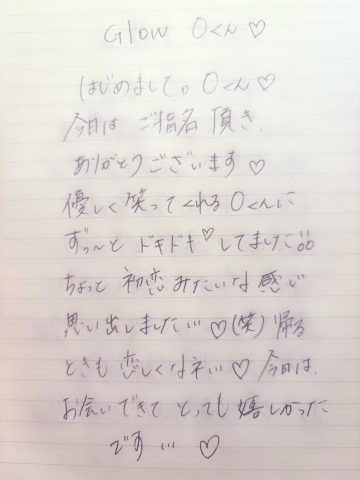 Glow Oくん♡
はじめまして。Oくん♡
今日は ご指名 頂き、
ありがとうございます♡
優しく笑ってくれるOくんに
ずっ〜と ドキドキ♡してました
ちょっと 初恋みたいな感じ
思い出しました…♡(笑)帰る
ときも 恋しくなネ…♡ 今日は、
お会いできて とっても嬉しかった
です…♡